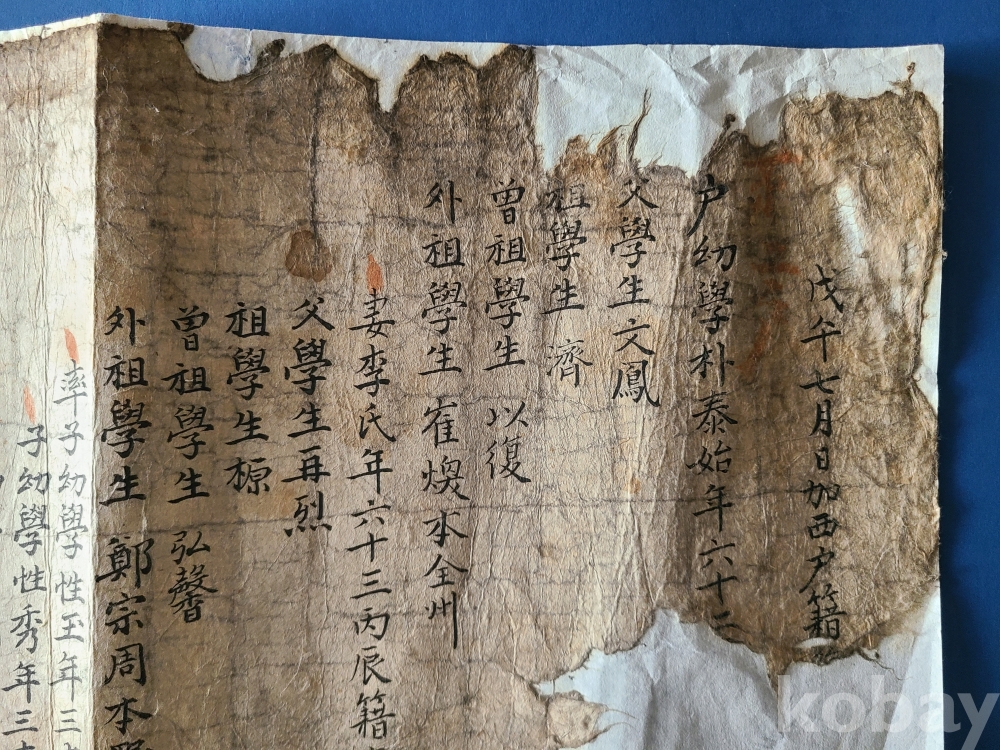 戊午七月日加西戶籍
戶幼學朴泰始年六十三
父學生文鳳
祖學生 濟
曾祖學生 以復
外祖學生 崔煥本全州
妻李氏年六十三丙辰籍
父學生再烈
祖學生榞
曾祖學生 弘馨
外祖學生 鄭宗周本
率子幼學性玉年三
子幼學性秀年三
kobay